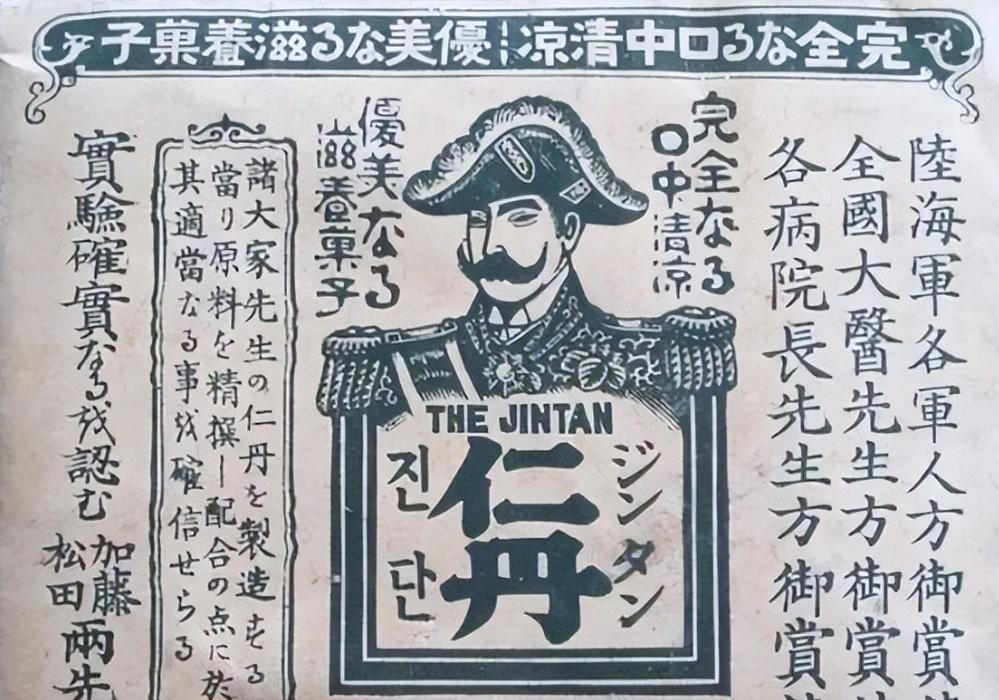 完全なる口中清凉 優美なる滋養菓子
陸海軍各軍人方御賞
全國大醫先生方御賞
各病院長先生方御賞
完全なる
口中清凉
優美なる
滋養菓子
THE JINTAN
ジンタン
仁丹
진단
諸大家先生の仁丹を製造する
當り原料を精撰し配合の点に於
其適當なる事を確信せらる
實驗確實なるを認む
加藤
松田
兩先